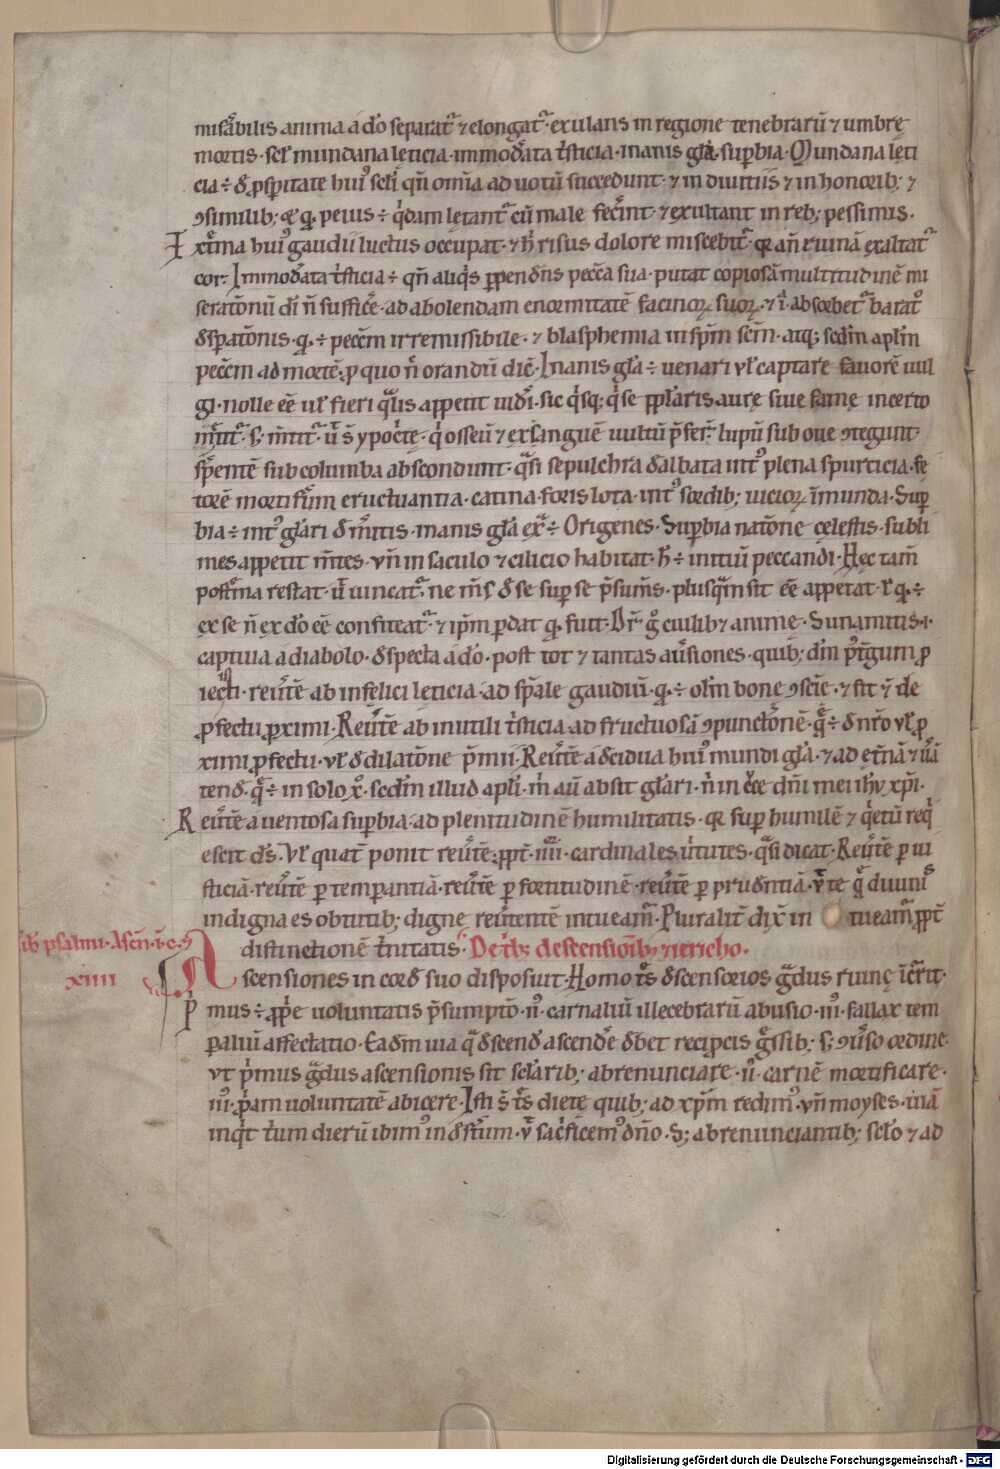 misabilis anima a do separat᷑ ⁊ elongat᷑· exularis in regione tenebrarū ⁊ umbrę
mortis· scł mundana lęticia· immodata tsticia· inanis gła· supbia· Mundana lęti
cia ÷ ꝺ pspitate hui᷒ scłi qn̄ omīa ad uotū succedunt· ⁊ in diuitiis ⁊ in honorib; ⁊
ɔsimilib; peius ÷ qdam lętant᷑ cū male fecint· ⁊ exultant in reb; pessimis·
Extma hui᷒ gaudii luctus occupat· ⁊ h risus dolore miscebit᷑· qꝛ an̄ ruinā exaltat᷑
cor· Immodata tsticia ÷ qn̄ aliqs ppendn̄s pecca sua· putat copiosā multitudinē mi
seratōnū dī n̄ sufficē· ad abolendam enormitatē facinoꝝ suoꝝ· ⁊ absorbet᷑ barat᷒
ꝺspatōnis· q· ÷ peccm irremissibile· ⁊ blasphemia in spm scm· atq; scdm aplm
peccm ad mortē· p quo n̄ orandū dic̄· Inanis gła ÷ uenari uł captare fauorē uul
gi· nolle eē uł fieri qłis appetit uidi· sic qsq; qse pplaris aurę siue famę incerto
ypocte· q osseū ⁊ exsanguē uultū pfer· lupū sub oue ɔtegunt·
spentē sub columba abscondunt· qsi sepulchra ꝺalbata int᷒ plena spurticia· fę
torē mortifm eructuantia· catina· foris lota· int᷒ sordib; uicioꝝ īmunda· Sup
bia ÷ int᷒ głari ꝺ mitis· inanis gła ex ÷ Origenes· Supbia natōne cęlestis· subli
mes appetit m̄tes· vn̄ in saculo ⁊ cilicio habitat· h ÷ initiū peccandi· Hęc tam̄
postma restat· uincat᷑· ne ꝺ se sup se psum̄s· plusqm sit eē appetat· ł q· ÷
ex se n̄ ex do eē confiteat᷑· ⁊ ipm pdat q· fuit· Dr g ciuilib ⁊ anime· Sunamitis· i·
captiua a diabolo· ꝺspecta a do· post tot ⁊ tantas auersiones· quib; dm
iecit· reutē ab infelici leticia· ad spale gaudiū· q· ÷ olim bonę ɔscie· ⁊ fit de
pfectu pximi· Reutē ab inutili tsticia· ad fructuosā ɔpunctonē· q ÷ ꝺ nro uł p
ximi pfectu· vł ꝺ dilatōne pmii· Reutē a ꝺcidua hui᷒ mundi gła· ⁊ ad ętnā ⁊ uā
tend· q ÷ in solo x· scdm illud apłi· m au absit głari· n in cce dni mei ihu xpi·
Reutē a uentosa supbia· ad plenitudinē humilitatis· qꝛ sup humilē ⁊ qetū req
escit ds· Vł quat ponit reutē· ppt· iiii· cardinales ututes· qsi dicat· Reutē p iu
sticiā· reutē p temperantiā· reutē p fortitudinē· reutē p prudntiā· te q diuinis
indigna es obtutib; digne reutentē intueam᷑· Pluralit dix in tueam᷑ ppt
distinctionē tnitatis· De tb; descensioib; ⁊ iericho·
ib psalmi· Asen· xiiii
Ascensiones in cord suo disposuit· Homo ts ꝺscensorios gdus ruinę icrit·
Pmus ÷ ppe uoluntatis psumpto· ii᷒· carnaliū illecebrarū abusio· iii᷒· fallax tem
paliū affectatio· Eadm uia q ꝺscend ascendē ꝺbet recipcis gssib; s; ɔuso ordine·
vt pmus gdus ascensionis sit scłarib; abrenunciare· ii᷒· carnē mortificare·
iii᷒· ppam uoluntatē abicere· Isti s ts dietę quib; ad xpm redim᷒· vn̄ moyses· uiā
inqt tum dierū ibim᷒ in ꝺstum· sacficem᷒ dn̄o· S; abrenunciantib; scło ⁊ ad
Digitalisierung gefördert durch die Deutsche Forschungsgemeinschaft - DFG